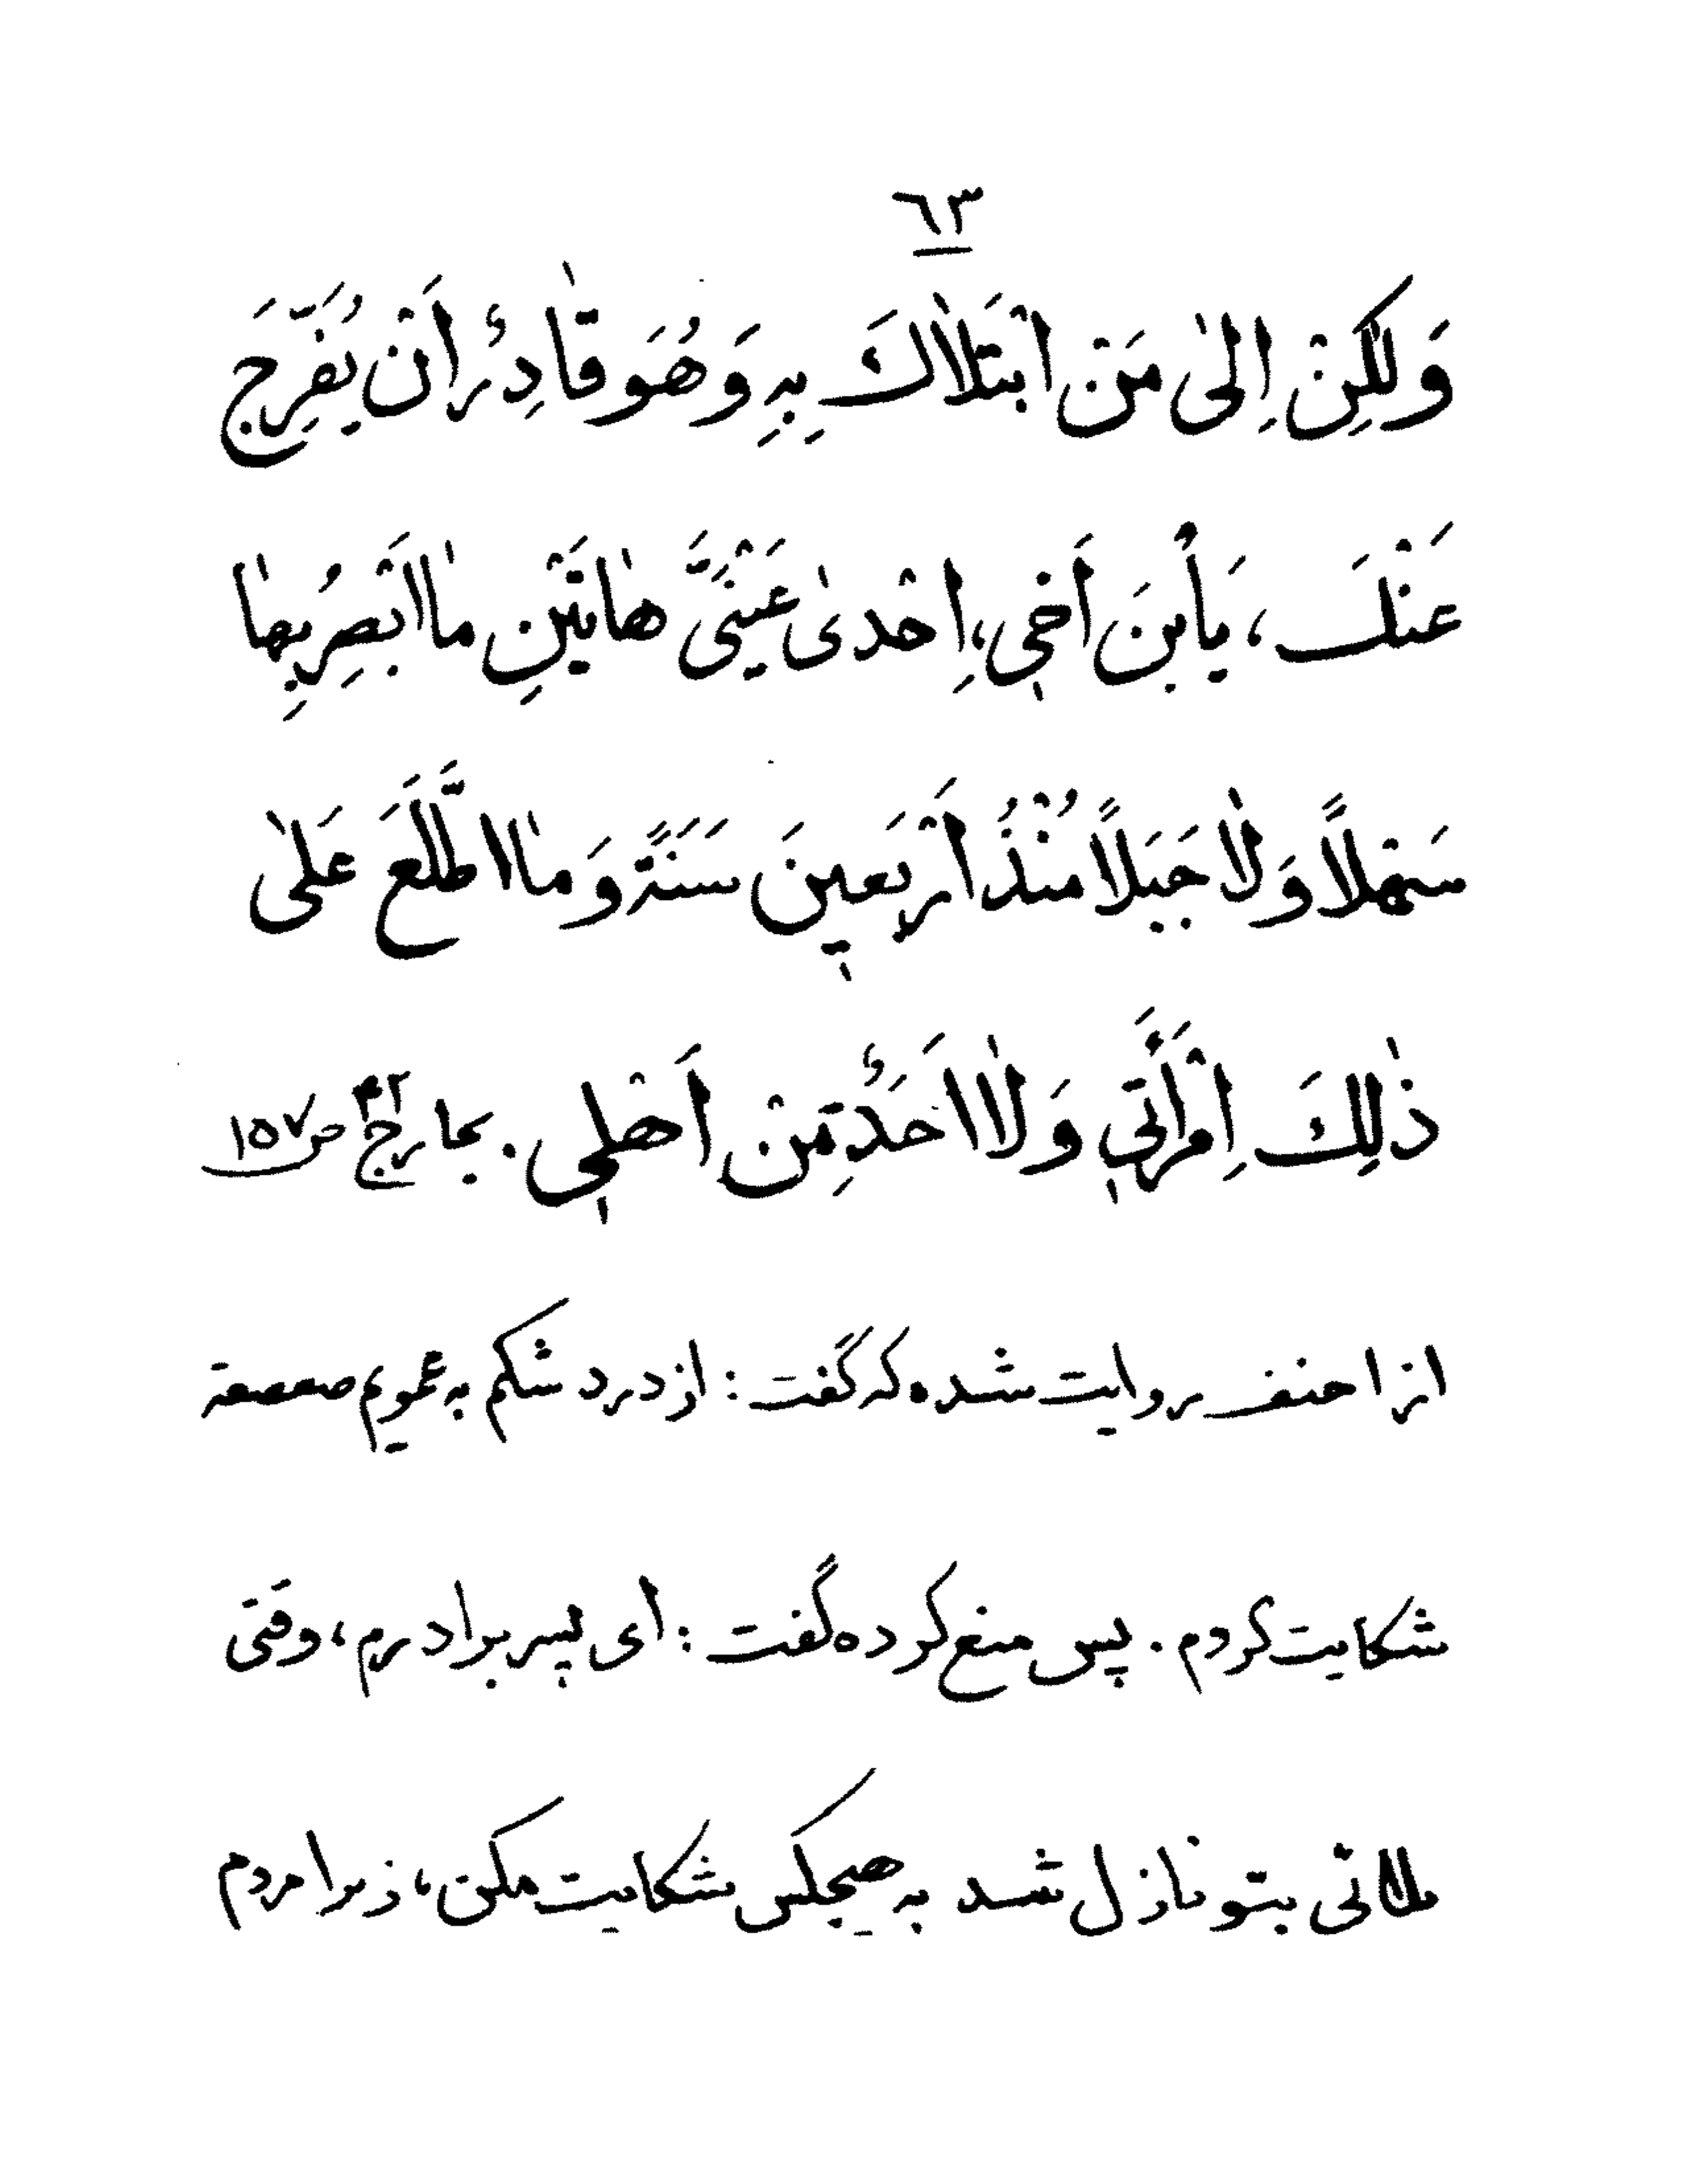 ٦٣
وَلٰكِنْ اِلىٰ مَنْ ابْتَلاٰكَ بِهِ وَهُوَ قٰادِرٌ اَنْ يُفَرِّجَ
عَنْكَ، يَا بْنَ اَخي، اِحْدىٰ عَيْنَيَّ هٰاتَيْنِ مٰا اَبْصُرُ بِهٰا
سَهْلاً وَلاٰ جَبَلاً مُنْذُ اَرْبَعينَ سَنَةً وَمٰا اطَّلَعَ عَلىٰ
ذٰلِكَ اِمْرَأَتي وَلاٰ اَحَدٌ مِنْ اَهْلي. بحار ج۴۲ ص۱۵۷
از احنف روایت شده که گفت: از درد شکم به عمویم صعصعة
شکایت کردم. پس منع کرده گفت: ای پسر برادرم، وقتی
بلائی بتو نازل شد به هیچکس شکایت مکن، زیرا مردم